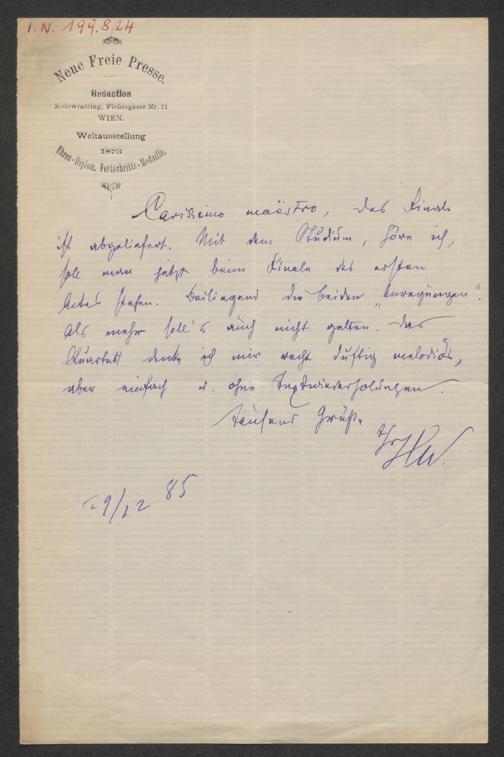 I.N. 199.824
Neue Freie Presse.
Redaction
Kolowratring, Fichtegasse Nr. 11
WIEN.
Weltausstellung
1873
Ehren-Diplom. Fortschritts-Medaille.
Carissimo maëstro, das Finale
ist abgeliefert. Mit dem Studium, höre ich,
soll man jetzt beim Finale des ersten
Actes stehen. Beiliegend die beiden „Anregungen".
Als mehr soll's auch nicht gelten. Das
Quartett denke ich mir recht duftig melodiös,
aber einfach u. ohne Textwiederholungen.
Tausend Grüße
Ihr HW.
29/12 85